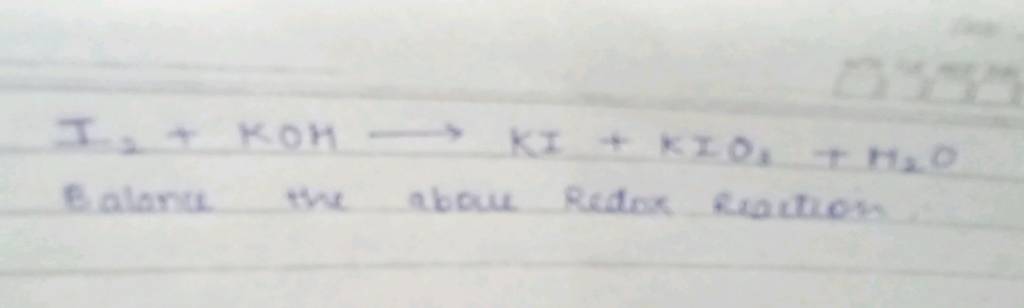 I₂ + KOH ⟶ KI + KIO₃ + H₂O
Balance the above Redox Reaction.